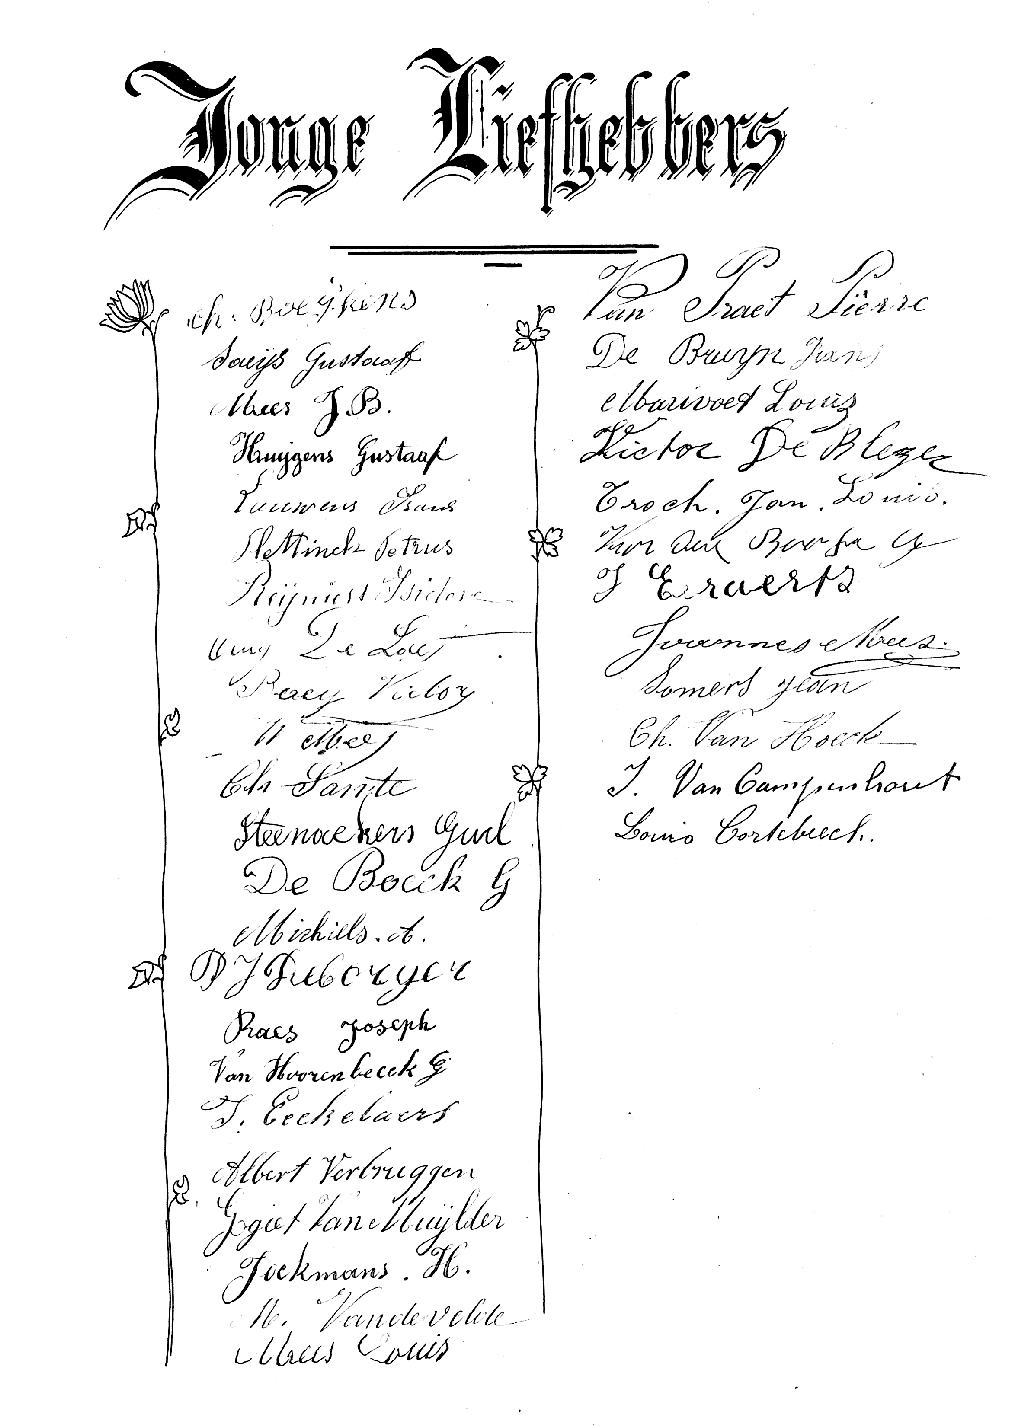 Jonge Liefhebbers
Ch. Boeijkens
Saeijs Gustaaf
Mees J.B.
Huijgens Gustaaf
Lauwens Frans
Slettinck Petrus
Reijniers Isidore
De Laet
Pacy Victor
Mees
Ch Samte
Steenackers Guil
De Boeck G
Michiels. A.
P J Duborger
Raes Joseph
Van Hoorenbeeck G
J. Eeckelaers
Albert Verbruggen
Van Muijlder
Jockmans. H.
M. Vandevelde
Mees Louis
Van Praet Pierre
De Bruyn Frans
Marivoet Louis
Victor De Bleger
Troch. Jan. Louis.
Van den
J Erraerts
Joannes Mees.
Somers Jean
Ch. Van Hoeck
J. Van Campenhout
Louis Cortebeeck.